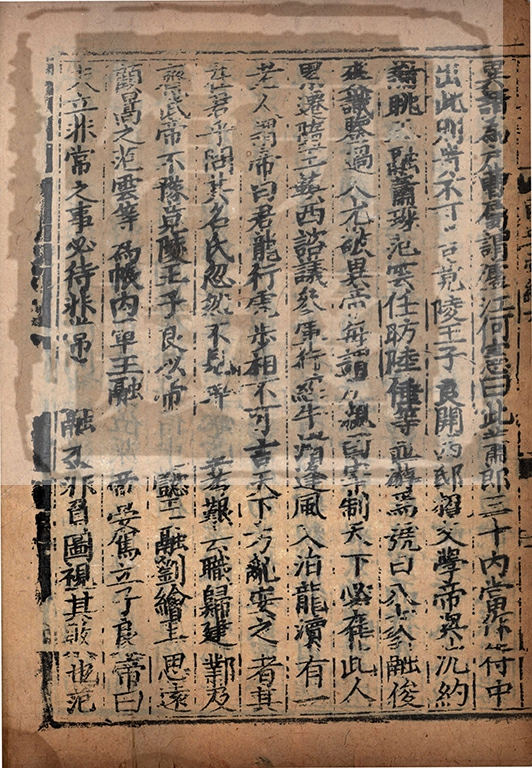 異請為户曹屬謂廬江何憲曰此蕭郎三十内當作侍中
出此則貴不可言竟陵王子良開西邸招文學帝與沈約
謝朓王融蕭琛范雲任昉陸倕等並遊焉號曰八友融俊
爽識鑒過人尤敬異帝每謂所親曰宰制天下必在此人
累遷隨王鎮西諮議參軍行經牛渚逢風入泊龍瀆有一
老人謂帝曰君龍行虎步相不可言天下方亂安之者其
在君乎問其名氏忽然不見尋 考艱去職歸建鄴及
齊武帝不豫竟陵王子良以帝 懿王融劉繪王思遠
顧暠之范雲等為帳内軍主融 帝晏駕立子良帝曰
夫立非常之事必待非常 融才非負圖視其敗也范